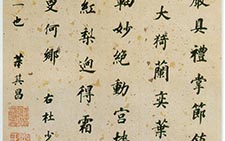 嚴具禮掌節鎮
大猗蘭奕葉
軸妙絕動宮牆
紅梨迥得霜
曼何鄉 右杜少
一也 董其昌